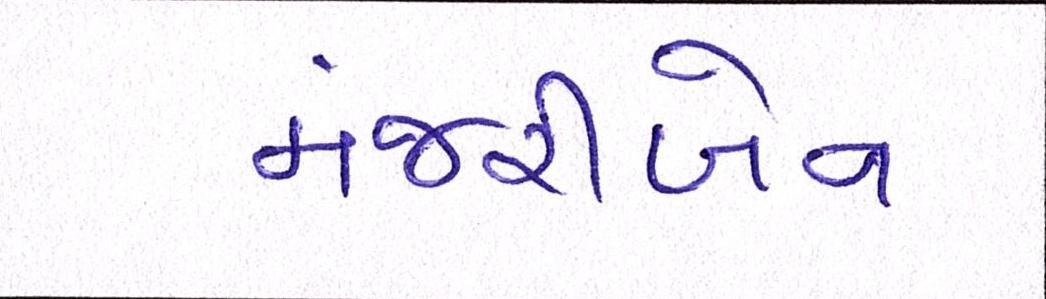 મંજરીબેન